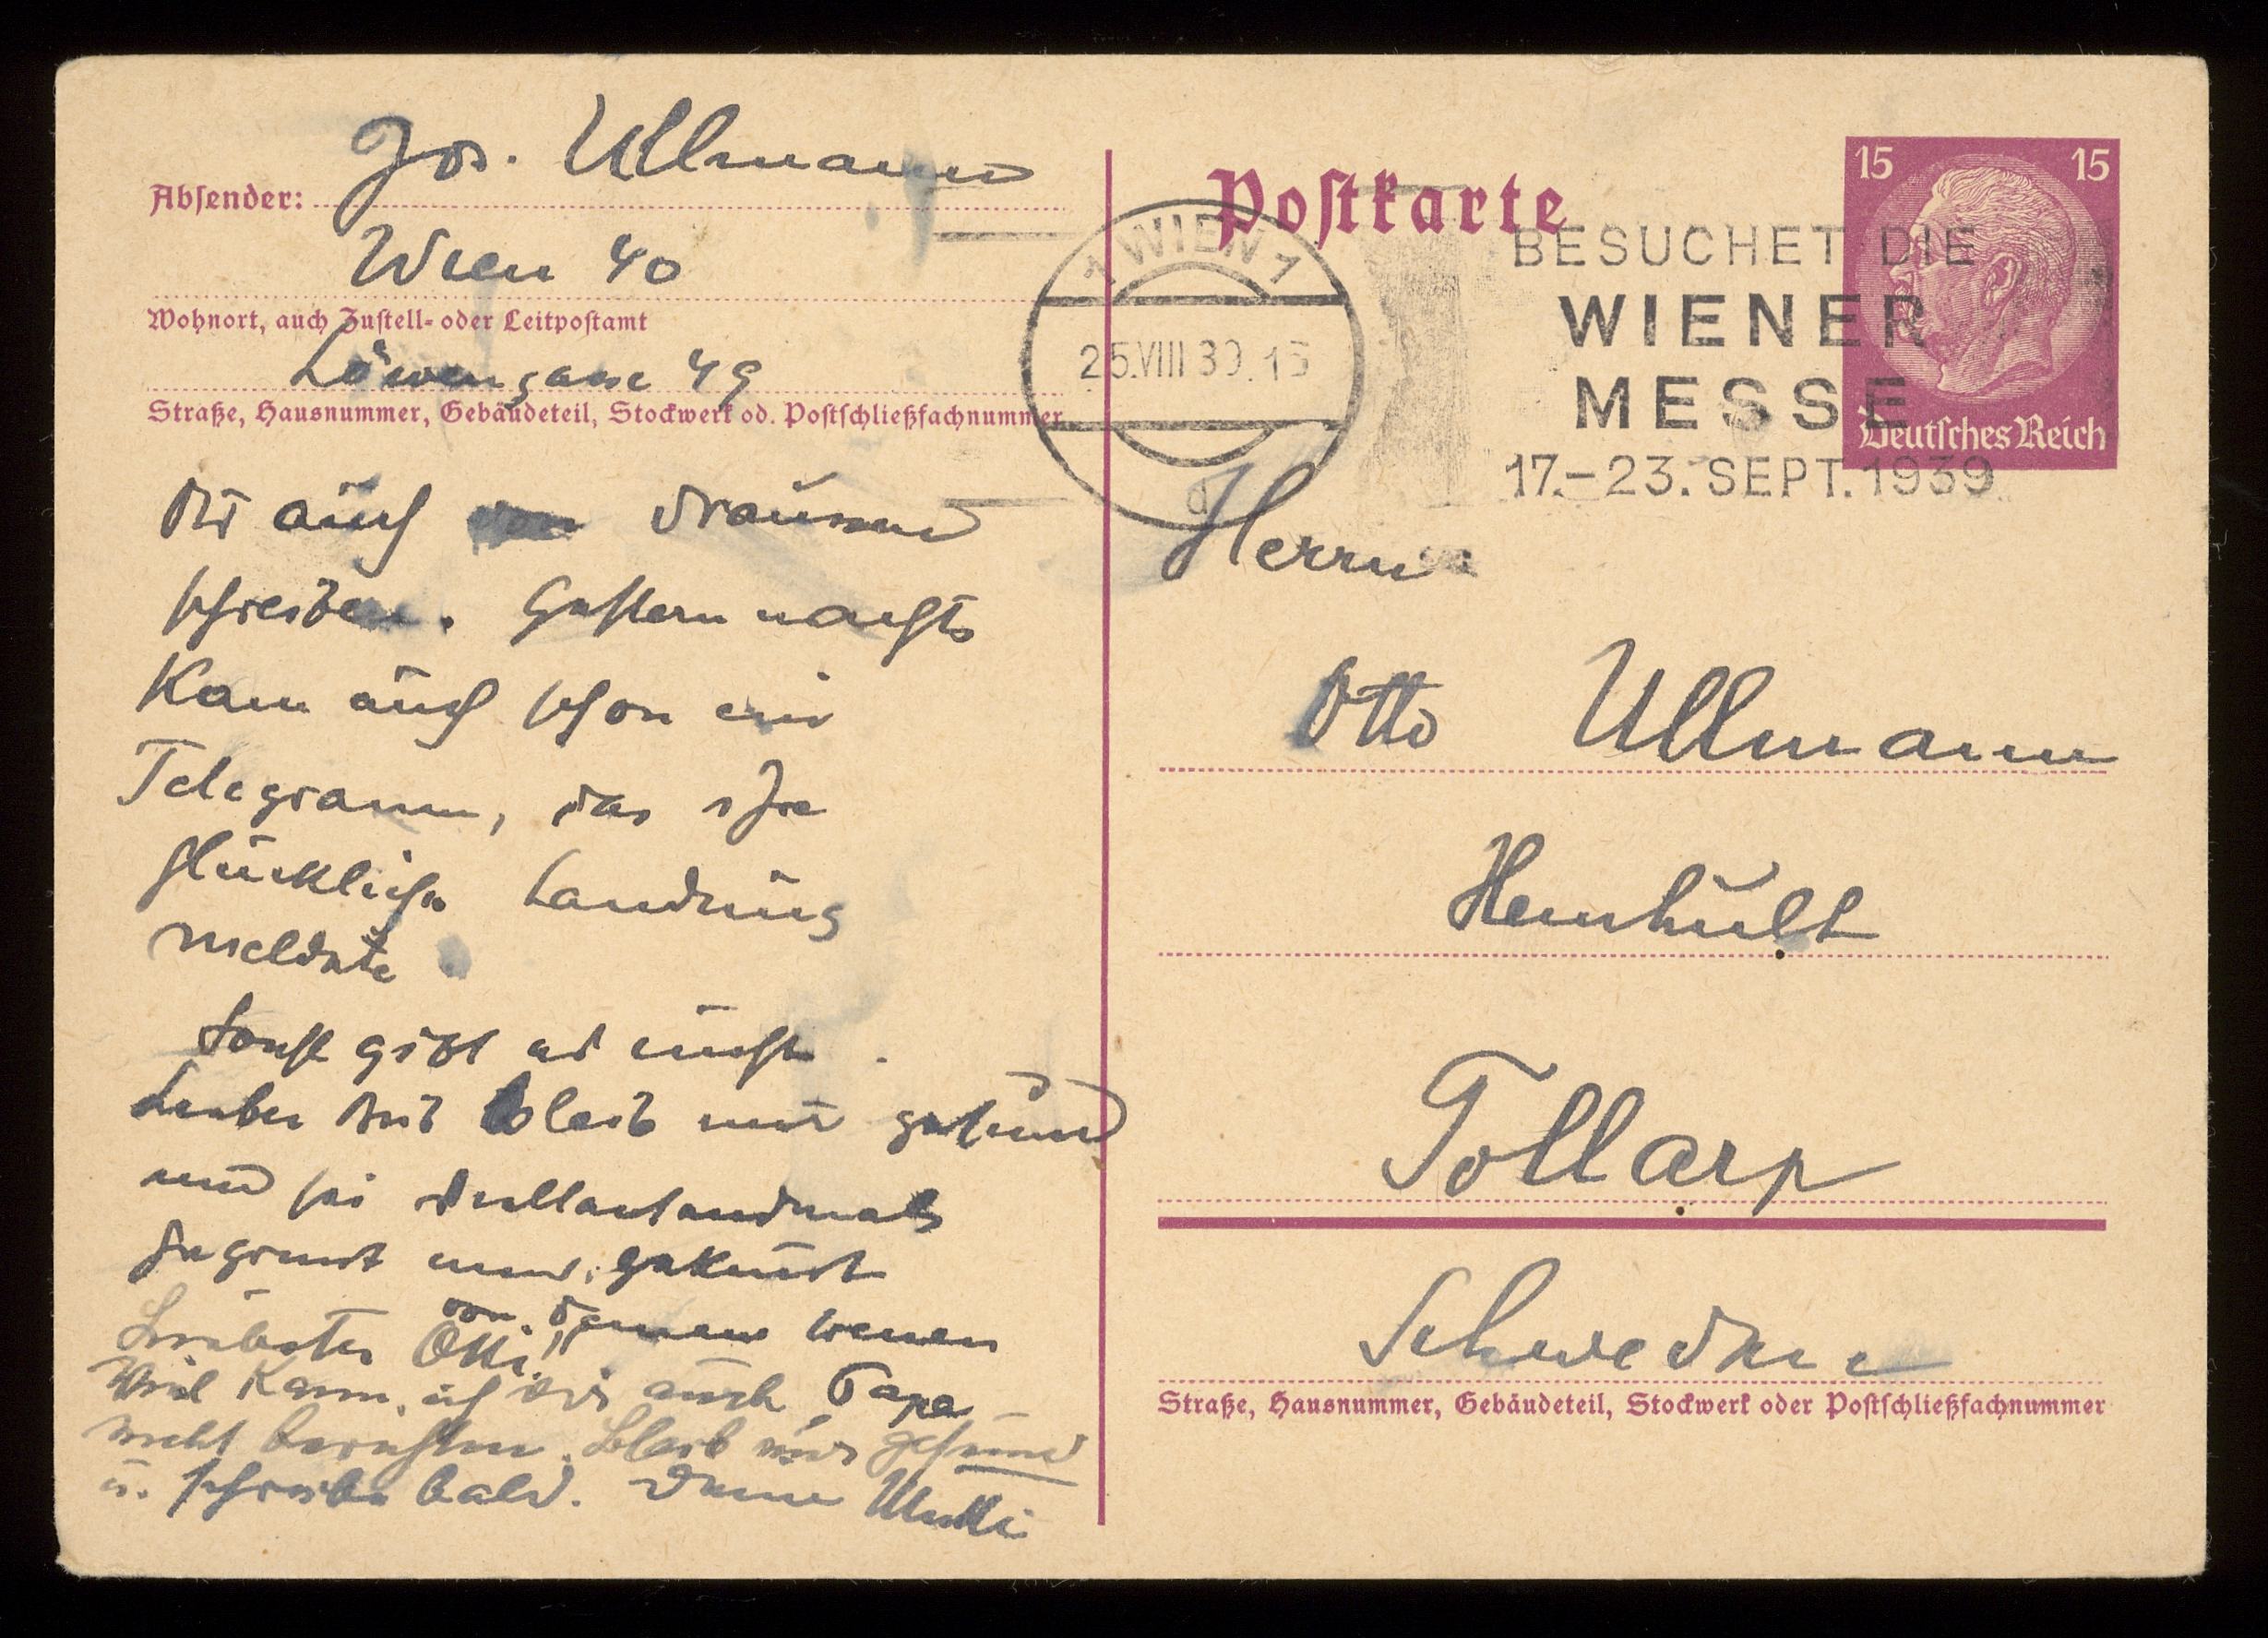 Absender: Jos. Ullmann
Wien 40
Wohnort, auch Zustell- oder Leitpostamt
Löwengasse 49
Straße, Hausnummer, Gebäudeteil, Stockwerk od. Postschließfachnummer
dir auch draussen
schreiben. Gestern nachts
kam auch schon ein
Telegramm, das ihre
glückliche Landung
meldete
Sonst gibt es nichts.
Lieber Bub bleib mir gesund
und sei vieltausendmals
gegrüsst und geküsst
von deinem
Liebster Otti!
Viel kann ich dir auch Papa
nicht berichten. Bleib mir gesund
u. schreibe bald. Deine Mutti
Postkarte
1 WIEN 1
25.VIII 39. 15
d
BESUCHET DIE
WIENER
MESSE
17.–23. SEPT. 1939
15 15
Deutsches Reich
Herrn
Otto Ullmann
Hemhult
Tollarp
Schweden
Straße, Hausnummer, Gebäudeteil, Stockwerk oder Postschließfachnummer